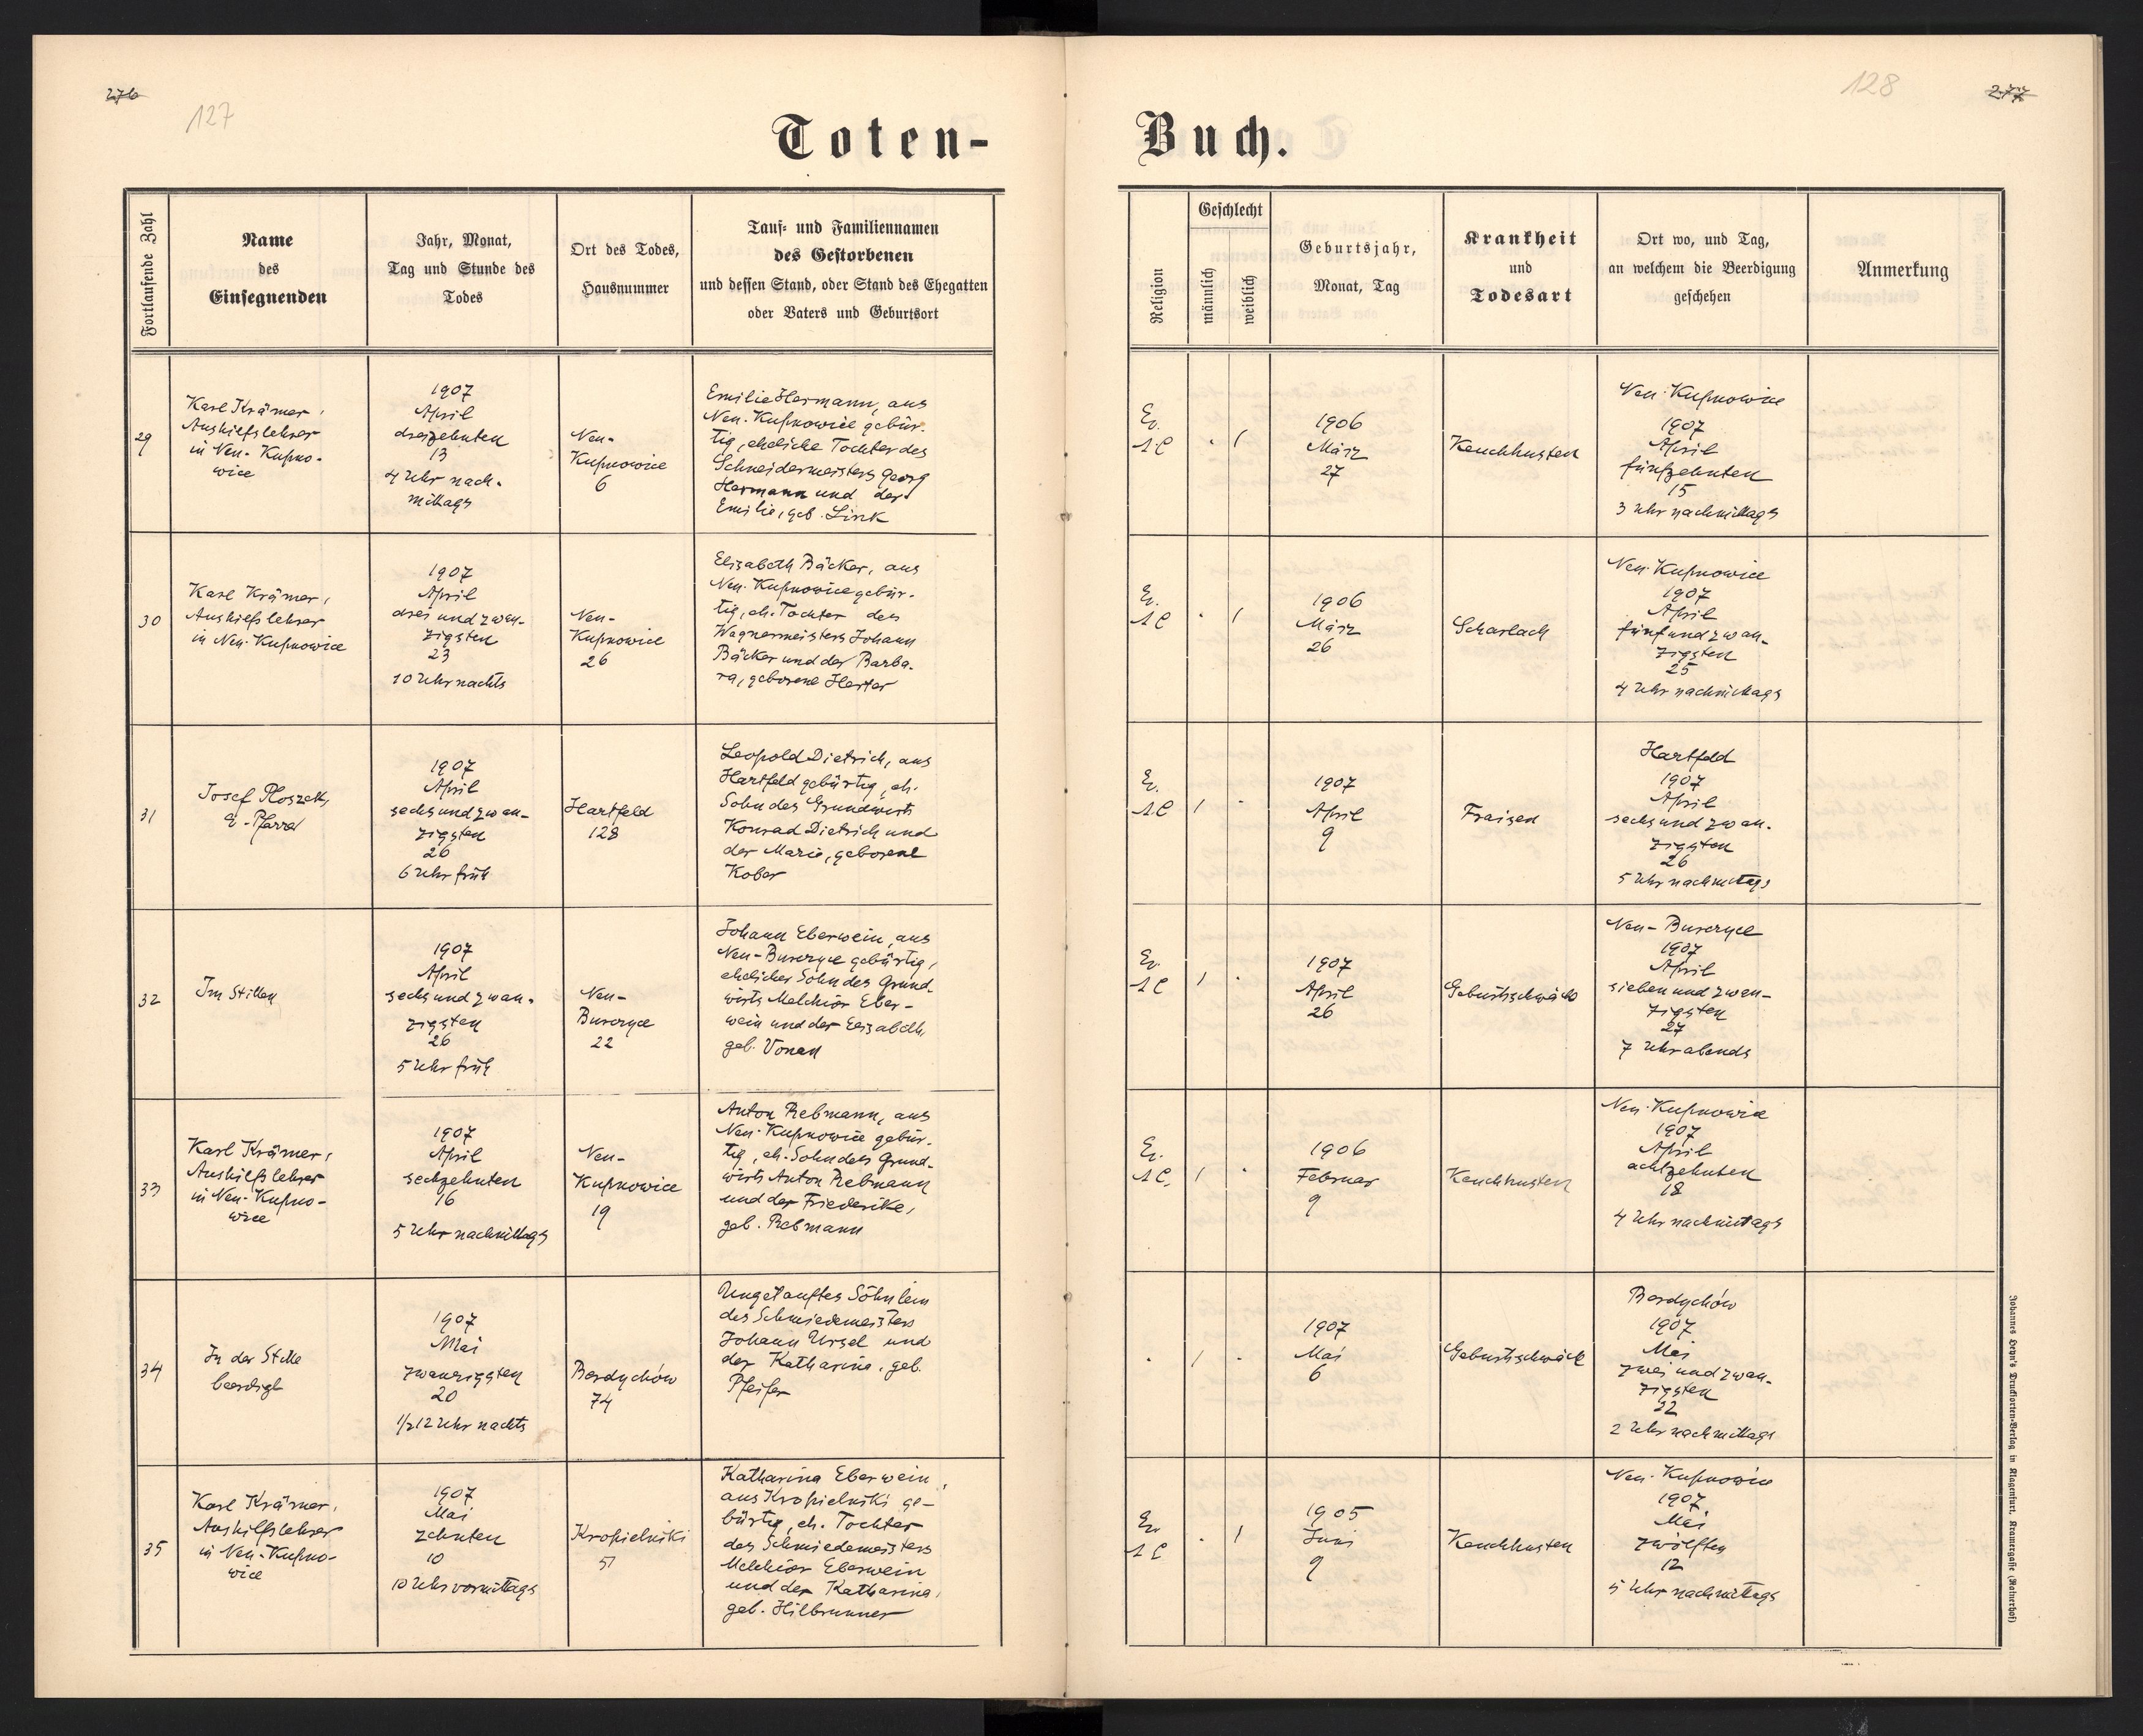 276
127
Toten-
Fortlaufende Zahl
Name
des
Einsegnenden
Jahr, Monat,
Tag und Stunde des
Todes
Ort des Todes,
Hausnummer
Tauf- und Familiennamen
des Gestorbenen
und dessen Stand, oder Stand des Ehegatten
oder Vaters und Geburtsort
29
Karl Krämer,
Aushilfslehrer
in Neu-Kupno-
wice
1907
April
dreizehnten
13
4 Uhr nach-
mittags
Neu-
Kupnowice
6
Emilie Hermann, aus
Neu-Kupnowice gebür-
tig, eheliche Tochter des
Schneidermeisters Georg
Hermann und der
Emilie, geb. Link
30
Karl Krämer,
Aushilfslehrer
in Neu-Kupnowice
1907
April
drei und zwan-
zigsten
23
10 Uhr nachts
Neu-
Kupnowice
26
Elisabeth Bäcker, aus
Neu-Kupnowice gebür-
tig, eh. Tochter des
Wagnermeisters Johann
Bäcker und der Barba-
ra, geborene Herter
31
Josef Ploszek,
ev. Pfarrer
1907
April
sechs und zwan-
zigsten
26
6 Uhr früh
Hartfeld
128
Leopold Dietrich, aus
Hartfeld gebürtig, eh.
Sohn des Grundwirts
Konrad Dietrich und
der Marie, geborene
Kober
32
Im Stillen
1907
April
sechs und zwan-
zigsten
26
5 Uhr früh
Neu-
Burczyce
22
Johann Eberwein, aus
Neu-Burczyce gebürtig,
ehelicher Sohn des Grund-
wirts Melchior Eber-
wein und der Elisabeth,
geb. Vonau
33
Karl Krämer,
Aushilfslehrer
in Neu-Kupno-
wice
1907
April
sechzehnten
16
5 Uhr nachmittags
Neu-
Kupnowice
19
Anton Rebmann, aus
Neu-Kupnowice gebür-
tig, eh. Sohn des Grund-
wirts Anton Rebmann
und der Friederike,
geb. Rebmann
34
In der Stille
beerdigt
1907
Mai
zwanzigsten
20
1/2 12 Uhr nachts
Berdychów
74
Ungetauftes Söhnlein
des Schmiedemeisters
Johann Ursel und
der Katharina, geb.
Pfeifer
35
Karl Krämer,
Aushilfslehrer
in Neu-Kupno-
wice
1907
Mai
zehnten
10
10 Uhr vormittags
Kropielniki
51
Katharina Eberwein,
aus Kropielniki ge-
bürtig, eh. Tochter
des Schmiedemeisters
Melchior Eberwein
und der Katharina,
geb. Hilbrunner
128
277
Buch.
Religion
Geschlecht
männlich
weiblich
Geburtsjahr,
Monat, Tag
Krankheit
und
Todesart
Ort wo, und Tag,
an welchem die Beerdigung
geschehen
Anmerkung
Ev.
A C
1
1906
März
27
Keuchhusten
Neu-Kupnowice
1907
April
fünfzehnten
15
3 Uhr nachmittags
Ev.
A C
1
1906
März
26
Scharlach
Neu-Kupnowice
1907
April
fünf und zwan-
zigsten
25
4 Uhr nachmittags
Ev.
A.C
1
1907
April
9
Fraisen
Hartfeld
1907
April
sechs und zwan-
zigsten
26
5 Uhr nachmittags
Ev.
A C
1
1907
April
26
Geburtsschwäche
Neu-Burczyce
1907
April
sieben und zwan-
zigsten
27
7 Uhr abends
Ev.
A C.
1
1906
Februar
9
Keuchhusten
Neu-Kupnowice
1907
April
achtzehnten
18
4 Uhr nachmittags
1
1907
Mai
6
Geburtsschwäche
Berdychów
1907
Mai
zwei und zwan-
zigsten
22
2 Uhr nachmittags
Ev
A C
1
1905
Juni
9
Keuchhusten
Neu-Kupnowice
1907
Mai
zwölften
12
5 Uhr nachmittags
Johannes Heyn's Drucksorten-Verlag in Klagenfurt, Kramergasse (Rainerhof)